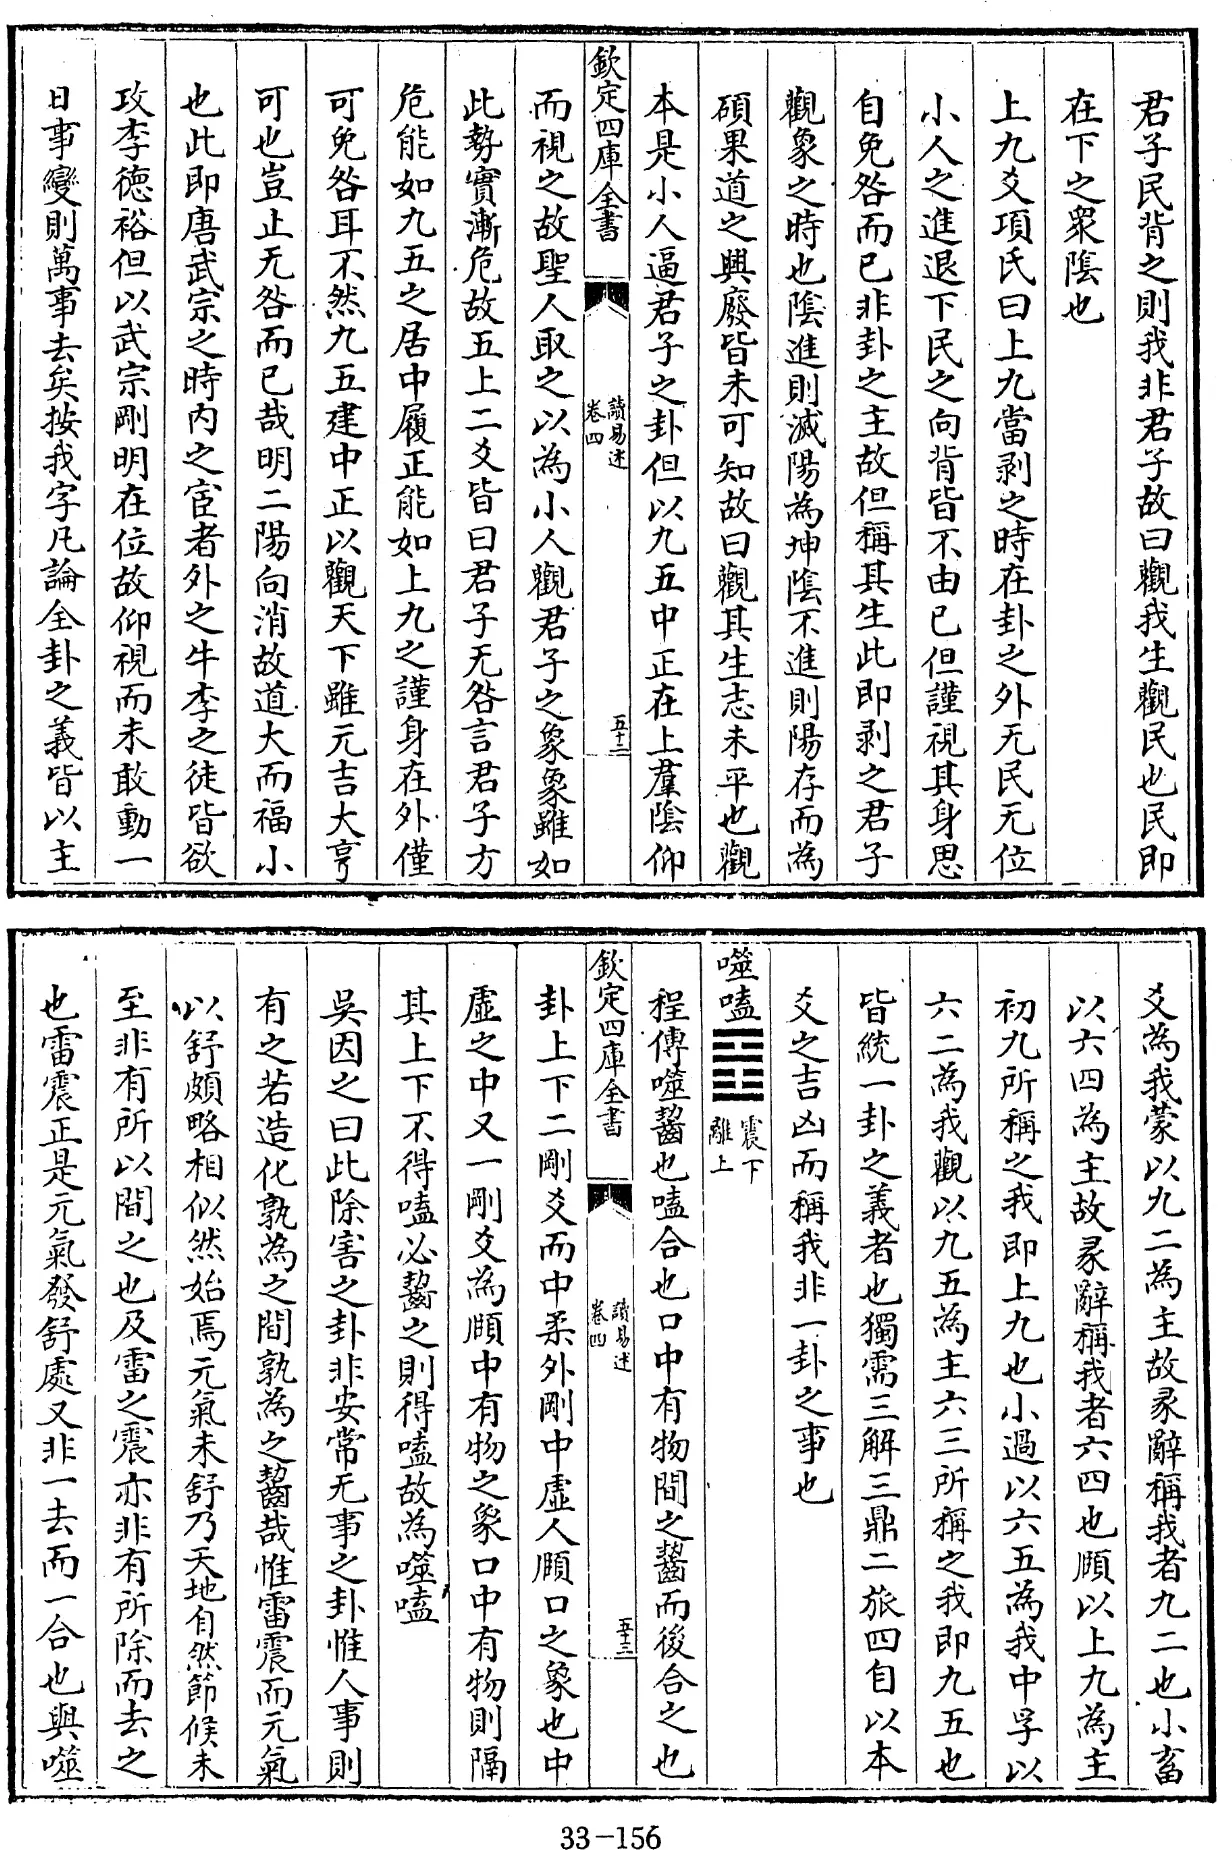 君子民背之則我非君子故曰觀我生觀民也民即
在下之衆隂也
上九爻項氏曰上九當剥之時在卦之外无民无位
小人之進退下民之向背皆不由已但謹視其身思
自免咎而已非卦之主故但稱其生此即剥之君子
觀象之時也隂進則滅陽為坤隂不進則陽存而為
碩果道之興廢皆未可知故曰觀其生志未平也觀
本是小人逼君子之卦但以九五中正在上羣陰仰
欽定四庫全書
讀易述
卷四
五十二
而視之故聖人取之以為小人觀君子之象象雖如
此勢實漸危故五上二爻皆曰君子无咎言君子方
危能如九五之居中履正能如上九之謹身在外僅
可免咎耳不然九五建中正以觀天下雖元吉大亨
可也豈止无咎而已哉明二陽向消故道大而福小
也此即唐武宗之時内之宦者外之牛李之徒皆欲
攻李德裕但以武宗剛明在位故仰視而未敢動一
日事變則萬事去矣按我字凡論全卦之義皆以主
爻為我蒙以九二為主故彖辭稱我者九二也小畜
以六四為主故彖辭稱我者六四也頤以上九為主
初九所稱之我即上九也小過以六五為我中孚以
六二為我觀以九五為主六三所稱之我即九五也
皆統一卦之義者也獨需三解三鼎二旅四自以本
爻之吉凶而稱我非一卦之事也
噬嗑䷔震下
離上
程傳噬齧也嗑合也口中有物間之齧而後合之也
欽定四庫全書
讀易述
卷四
五十三
卦上下二剛爻而中柔外剛中虛人頤口之象也中
虛之中又一剛爻為頤中有物之象口中有物則隔
其上下不得嗑必齧之則得嗑故為噬嗑
吳因之曰此除害之卦非安常无事之卦惟人事則
有之若造化孰為之間孰為之齧哉惟雷震而元氣
以舒頗略相似然始焉元氣未舒乃天地自然節候未
至非有所以間之也及雷之震亦非有所除而去之
也雷震正是元氣發舒處又非一去而一合也與噬
33-156